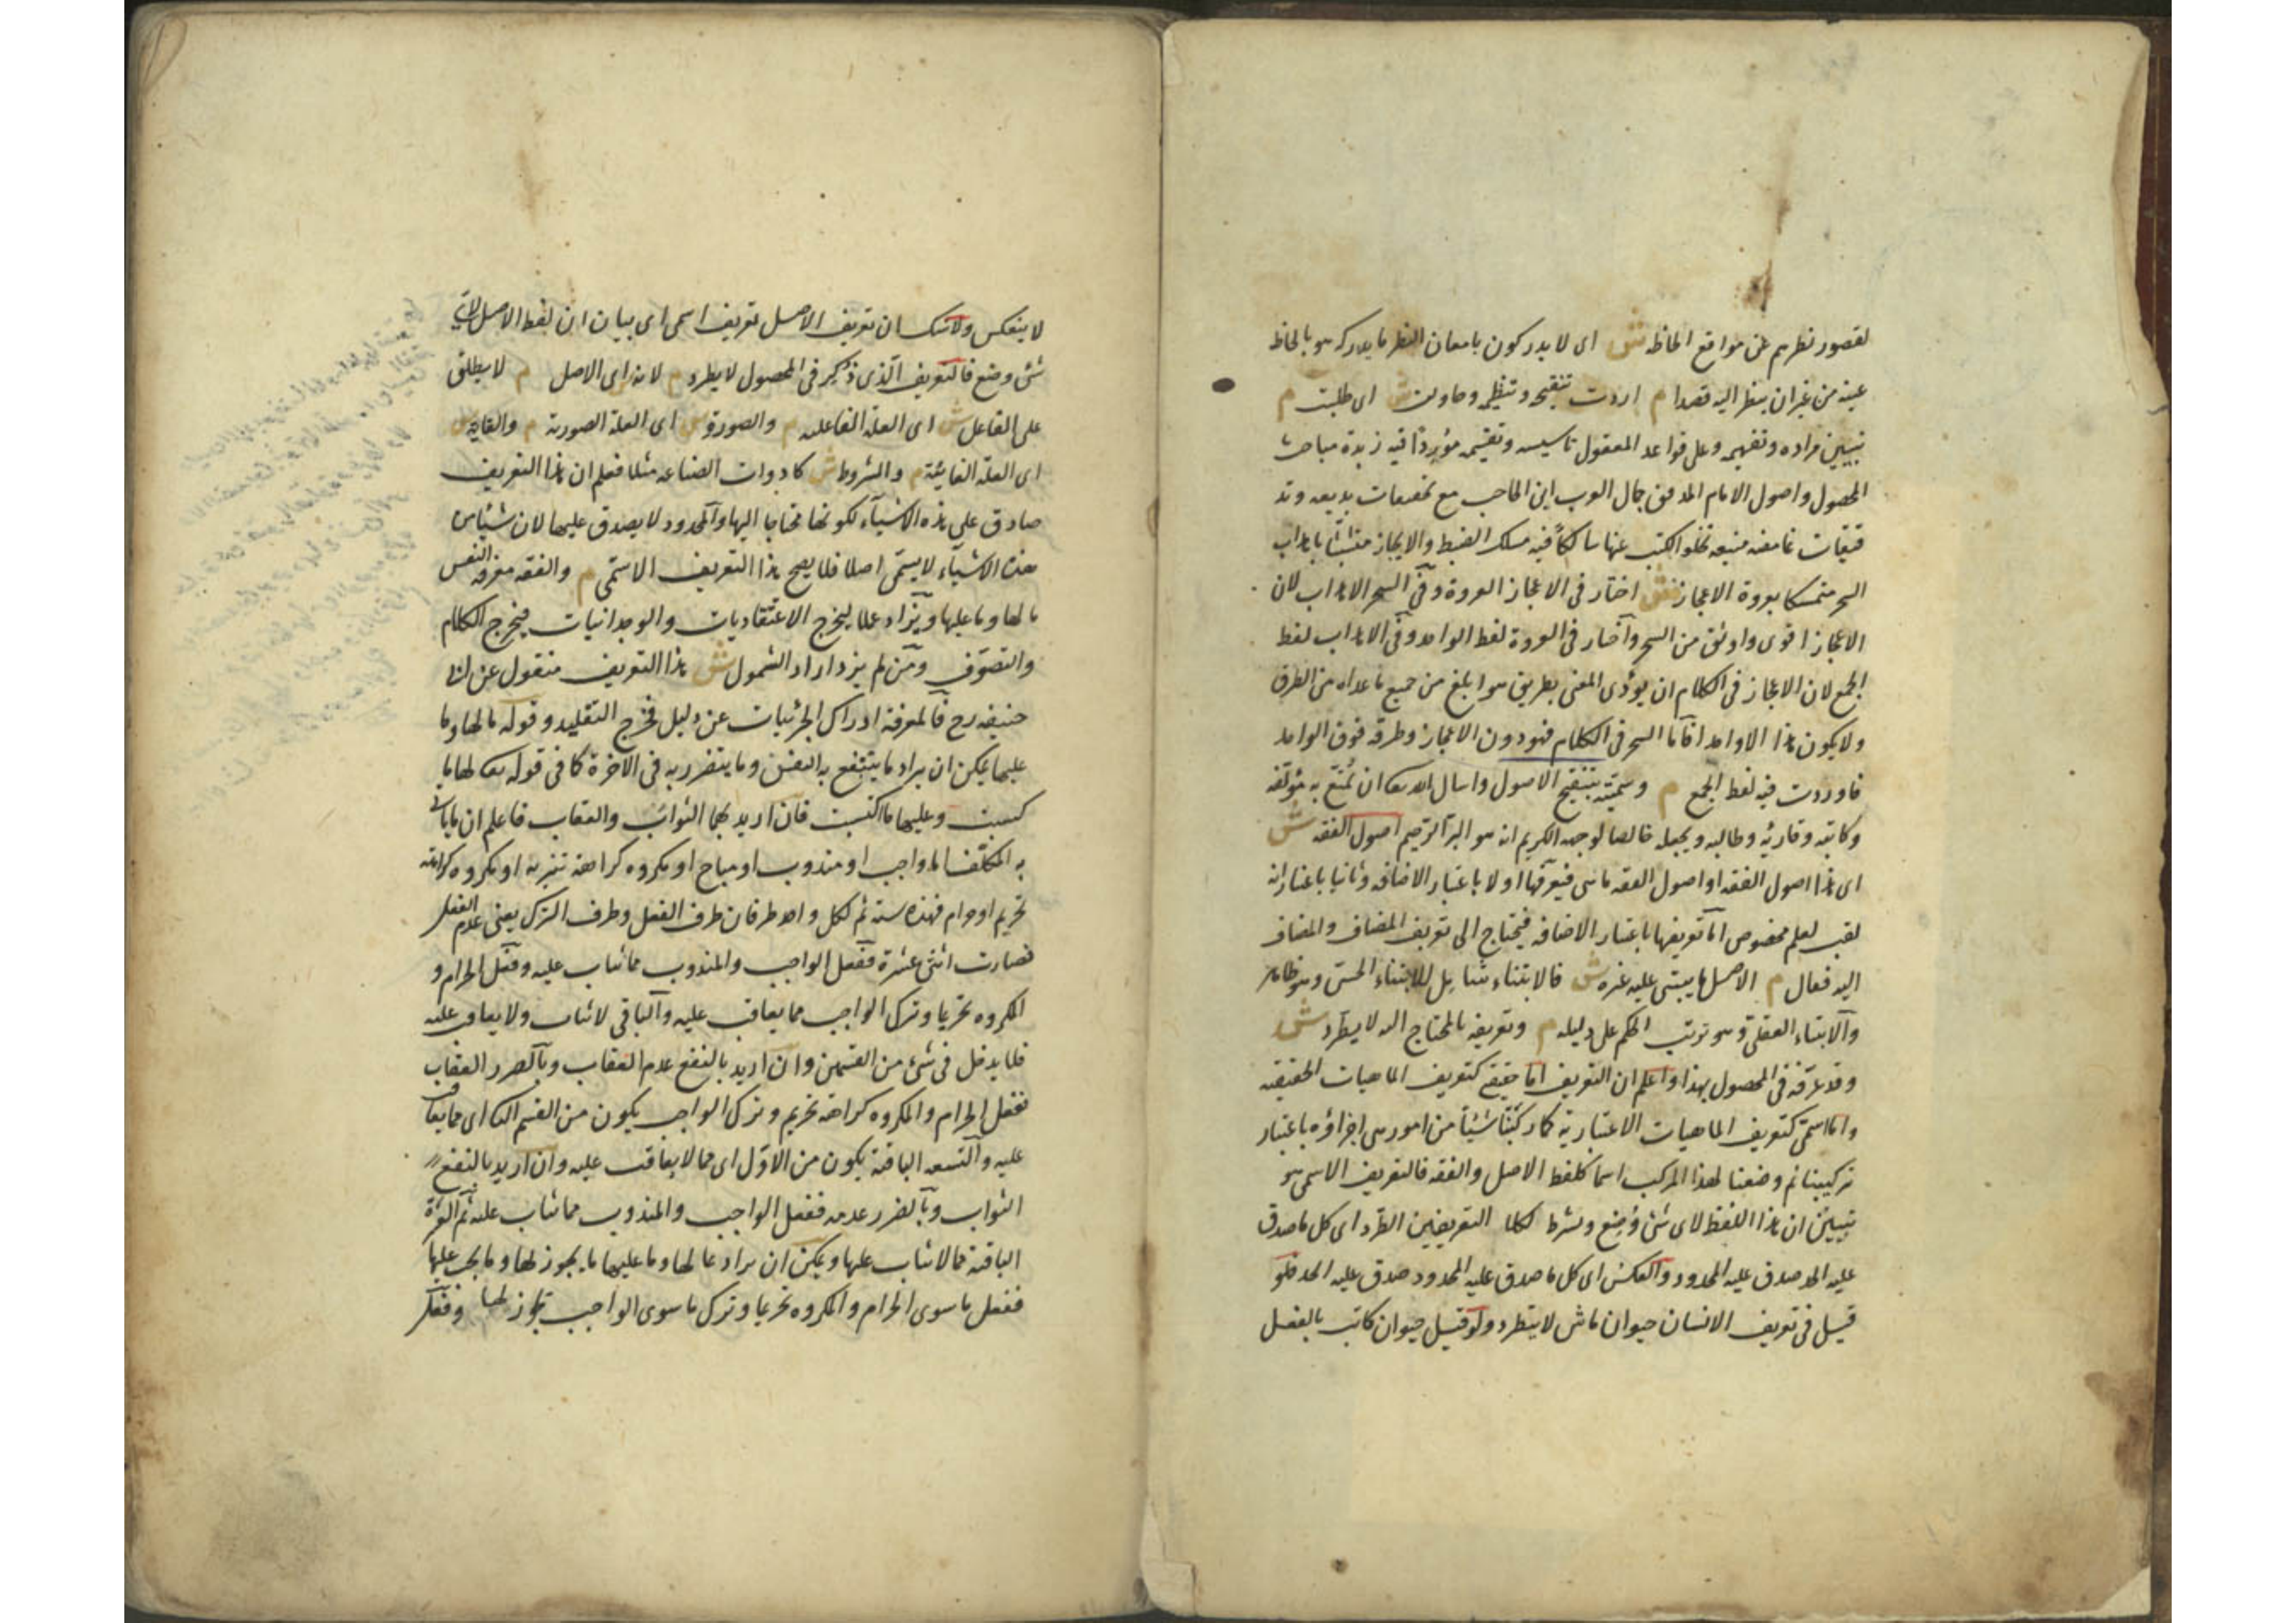 لقصور نظرهم عن مواقع الحاظه ش اى لا يدركون بامعان النظر ما يدركه هو بالحاظ
عينه من غير ان ينظر اليه قصدا م اردت تنقيحه و تنظيمه وحاولت ش اى طلبت م
تبيين مراده وتفهيمه وعلى قواعد المعقول تاسيسه وتقسيمه موردا فيه زبدة مباحث
المحصول واصول الامام المدقق جمال العرب ابن الحاجب مع تحقيقات بديعه وتد
قيقات غامضه منيعه تخلو الكتب عنها سالكا فيه مسلك الضبط والايجاز متشبثا باهداب
السحر متمسكا بعروة الاعجاز ش اختار فى الاعجاز العروة وفى السحر الاهداب لان
الاعجاز اقوى واوثق من السحر واختار فى العروة لفظ الواحد وفى الاهداب لفظ
الجمع لان الاعجاز فى الكلام ان يؤدى المعنى بطريق هو ابلغ من جميع ما عداه من الطرق
ولا يكون هذا الا واحدا فاما السحر فى الكلام فهو دون الاعجاز وطرقه فوق الواحد
فاوردت فيه لفظ الجمع م وسميته بتنقيح الاصول واسال الله تعا ان يمتع به مؤلفه
وكاتبه وقاريه وطالبه ويجعله خالصا لوجهه الكريم انه هو البر الرحيم اصول الفقه ش
اى هذا اصول الفقه او اصول الفقه ماهى فنعرفها اولا باعتبار الاضافه وثانيا باعتبار انه
لقب لعلم مخصوص اما تعريفها باعتبار الاضافه فيحتاج الى تعريف المضاف والمضاف
اليه فقال م الاصل ما يبتنى عليه غيره ش فالابتناء شامل للابتناء الحسى وهو ظاهر
والابتناء العقلى وهو ترتب الحكم على دليله م وتعريفه بالمحتاج اليه لا يطرد ش
وقد عرفه فى المحصول بهذا واعلم ان التعريف اما حقيقى كتعريف الماهيات الحقيقيه
واما اسمى كتعريف الماهيات الاعتبارية كما ركبنا شيئا من امور هى اجزاؤه باعتبار
تركيبنا ثم وضعنا لهذا المركب اسما كلفظ الاصل والفقه فالتعريف الاسمى هو
تبيين ان هذا اللفظ لاى شئ وضع وشرط لكلا التعريفين الطرد اى كل ما صدق
عليه الحد صدق عليه المحدود والعكس اى كل ما صدق عليه المحدود صدق عليه الحد فلو
قيل فى تعريف الانسان حيوان ماش لا يطرد ولو قيل حيوان كاتب بالفعل
لا ينعكس ولا شك ان تعريف الاصل تعريف اسمى اى بيان ان لفظ الاصل لاى
شئ وضع فالتعريف الذى ذكر فى المحصول لا يطرد م لانه اى الاصل م لا يطلق
على الفاعل ش اى العلة الفاعليه م والصورة ش اى العلة الصورية م والغاية ش
اى العلة الغائية م والشروط ش كادوات الصناعه مثلا فعلم ان هذا التعريف
صادق على هذه الاشياء لكونها محتاجا اليها والمحدود لا يصدق عليها لان شيئا من
هذه الاشياء لا يسمى اصلا فلا يصح هذا التعريف الاسمى م والفقه معرفة النفس
ما لها وما عليها ويزاد عملا ليخرج الاعتقاديات والوجدانيات فيخرج الكلام
والتصوف ومن لم يزد اراد الشمول ش هذا التعريف منقول عن ابى
حنيفه رح فالمعرفة ادراك الجزئيات عن دليل فخرج التقليد وقوله ما لها وما
عليها يمكن ان يراد ما ينتفع به النفس وما يتضرر به فى الآخرة كما فى قوله تعا لها ما
كسبت وعليها ما اكتسبت فان اريد بهما الثواب والعقاب فاعلم ان ما ياتى
به المكلف اما واجب او مندوب او مباح او مكروه كراهة تنزيه او مكروه كراهة
تحريم او حرام فهذه ستة ثم لكل واحد طرفان طرف الفعل وطرف الترك يعنى عدم الفعل
فصارت اثنى عشرة ففعل الواجب والمندوب مما يثاب عليه وفعل الحرام و
المكروه تحريما وترك الواجب مما يعاقب عليه والباقى لا يثاب ولا يعاقب عليه
فلا يدخل فى شئ من القسمين وان اريد بالنفع عدم العقاب وبالضرر العقاب
ففعل الحرام والمكروه كراهة تحريم وترك الواجب يكون من القسم الثانى اى مما يعاقب
عليه والتسعه الباقية يكون من الاول اى مما لا يعاقب عليه وان اريد بالنفع
الثواب وبالضرر عدمه ففعل الواجب والمندوب مما يثاب عليه ثم العشرة
الباقية مما لا يثاب عليها ويمكن ان يراد بما لها وما عليها ما يجوز لها وما يجب عليها
ففعل ما سوى الحرام والمكروه تحريما وترك ما سوى الواجب يجوز لها وفعل